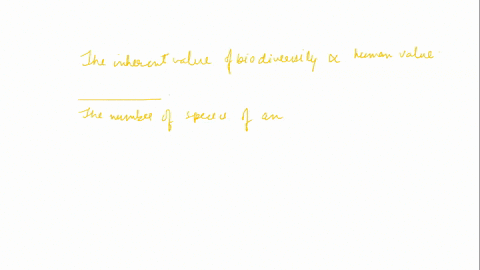 The inherent value of biodiversity ∝ human value
The number of specie of an